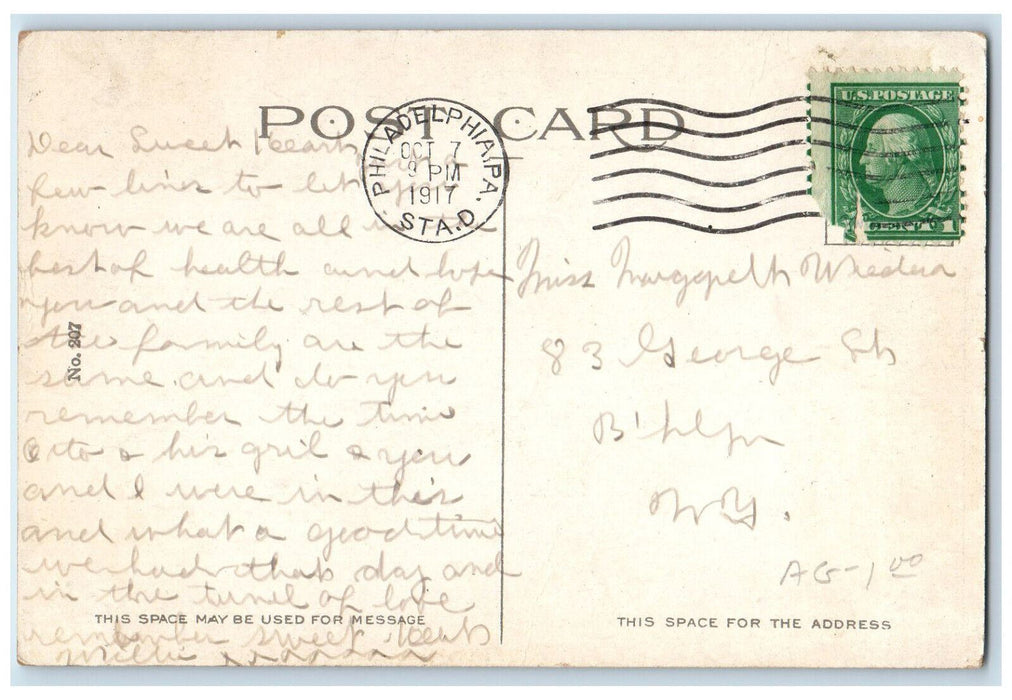 POST CARD
U.S.POSTAGE
PHILADELPHIA, PA.
OCT 7
9 PM
1917
STA. D
Dear Sweet Heart
few lines to let you
know we are all
best of health and hope
you and the rest of
the farmily are the
same and do you
remember the time
Otto & his gril & you
and I were in this
and what a good time
we had that day and
in the tunel of love
remember sweet Heart
Willie xxxxxxx
No. 207
THIS SPACE MAY BE USED FOR MESSAGE
Miss
83 George St
B'klyn
N.Y.
AG-1 00
THIS SPACE FOR THE ADDRESS